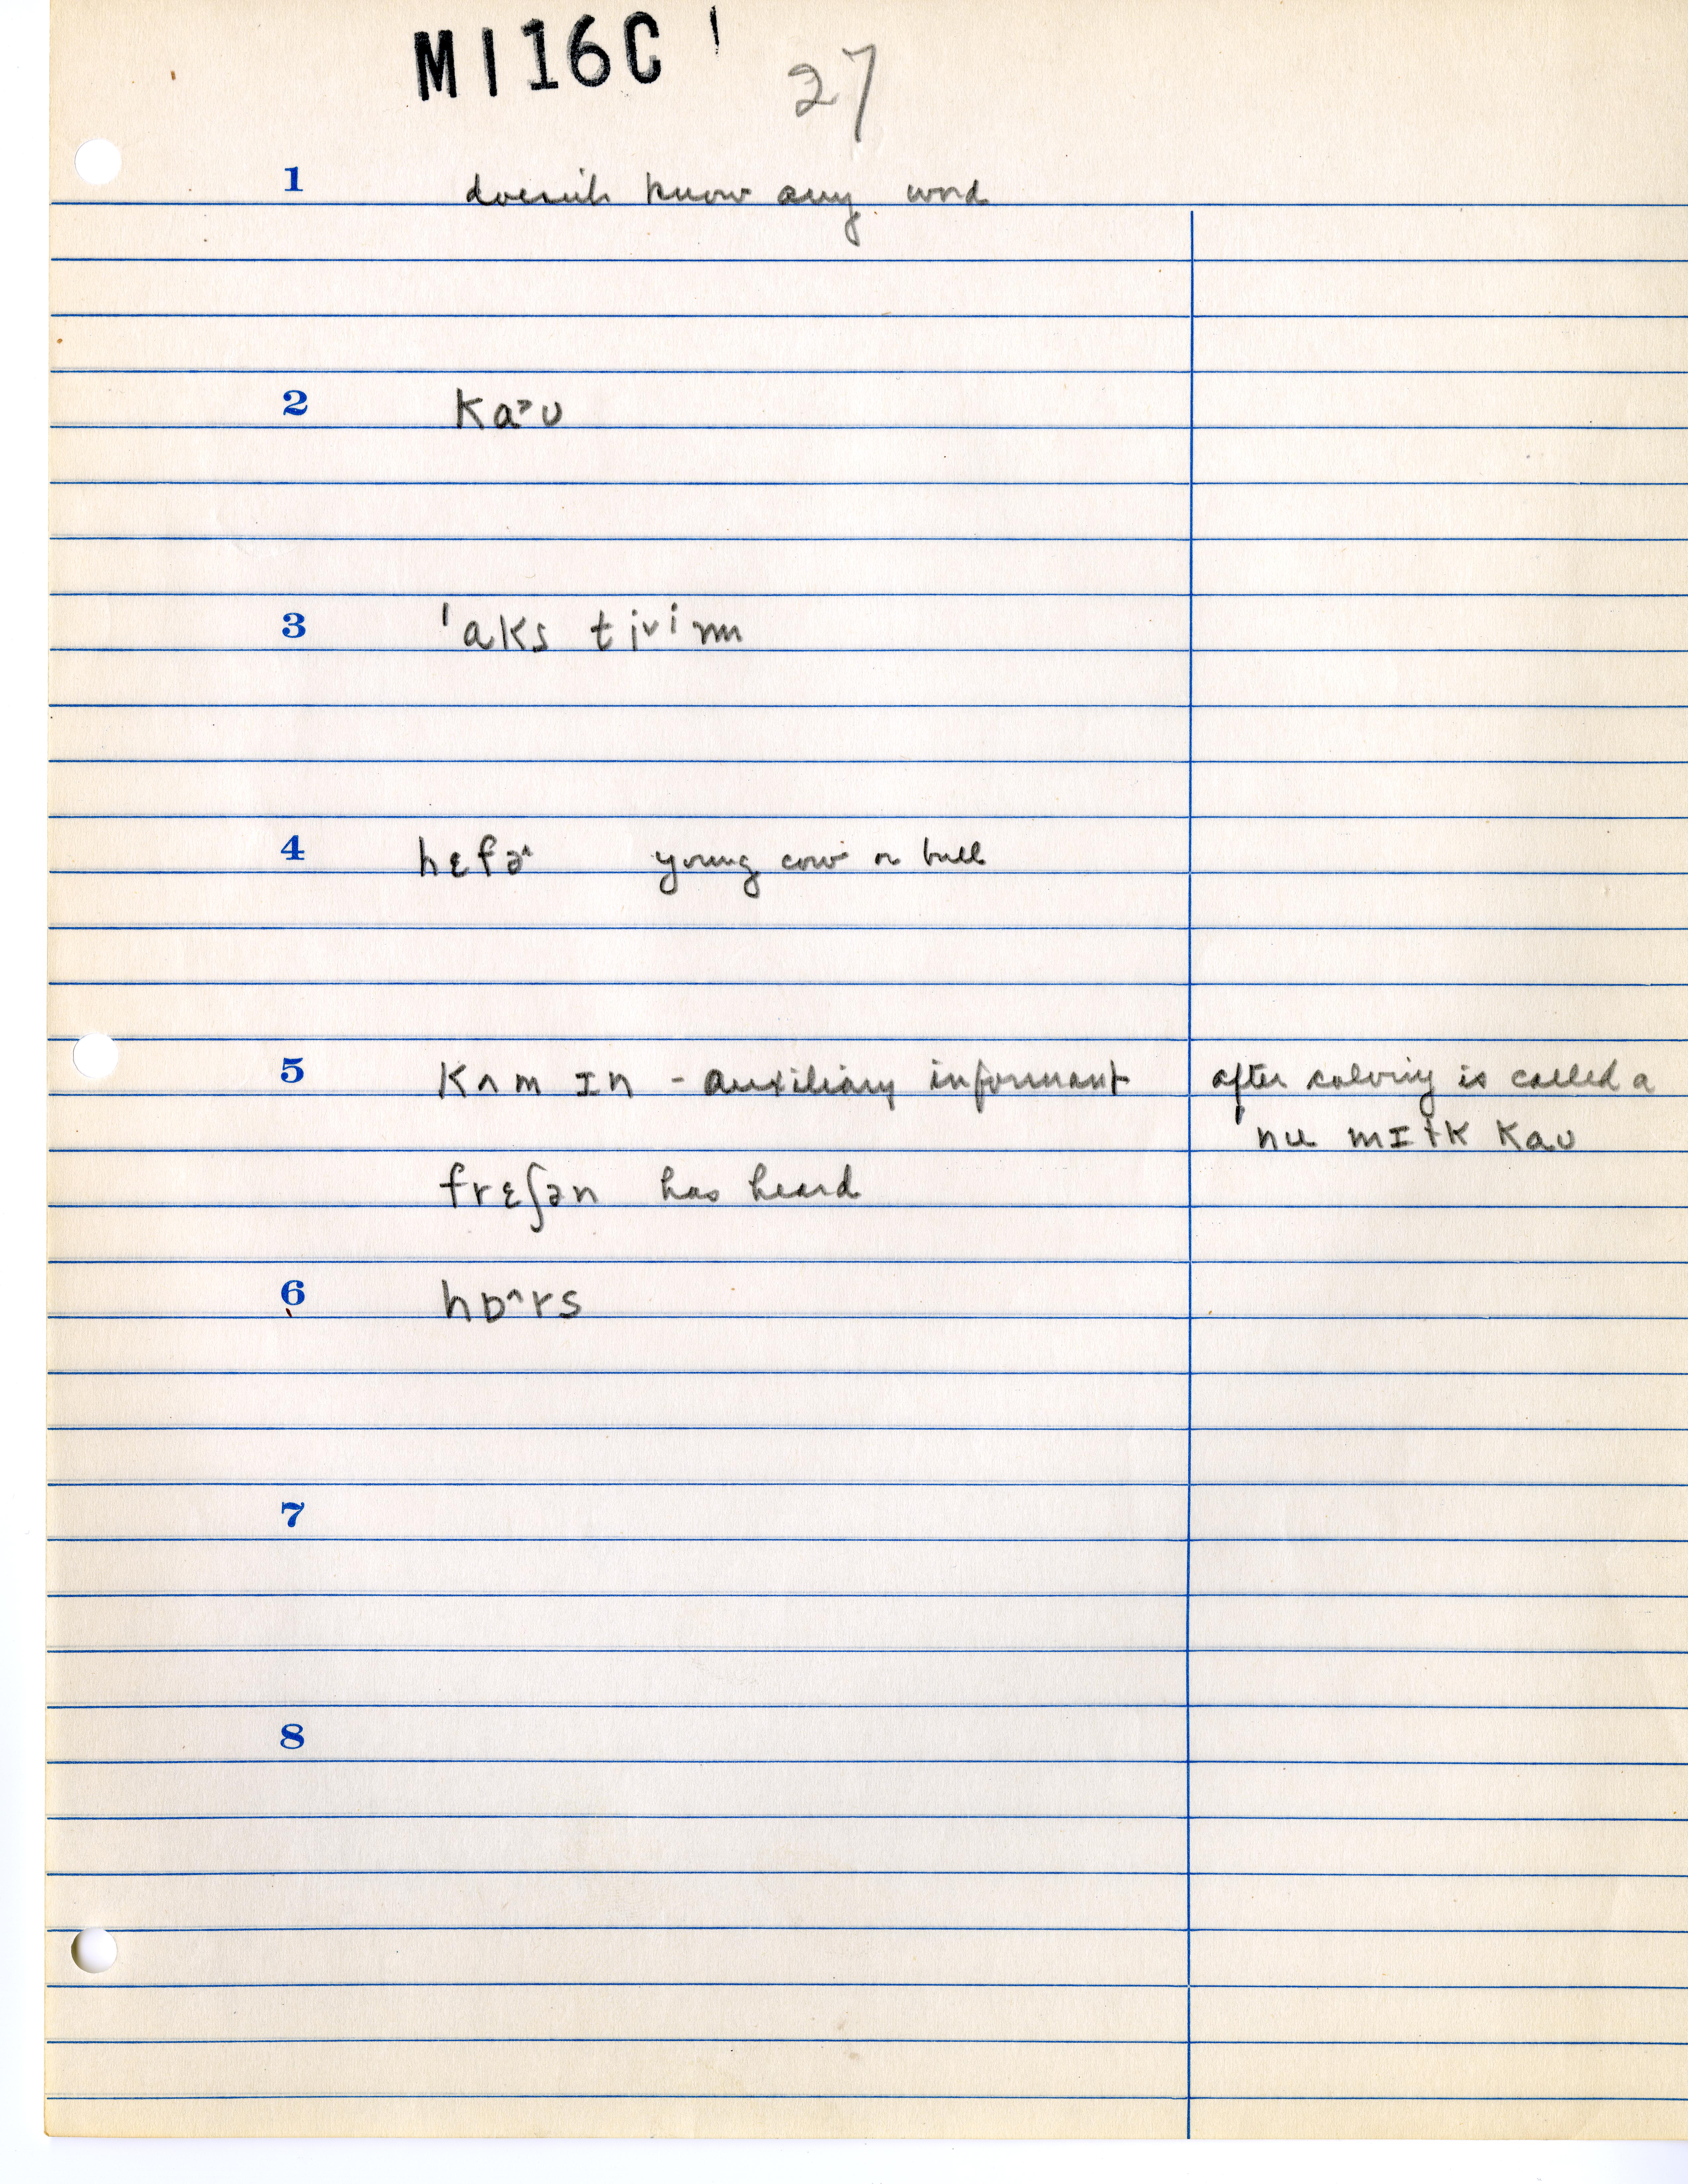 MI16C 1 27
1 doesn't know any word
2 ka˃ʊ
3 ˈaks tiᵛⁱm
4 hɛfə^ young cow or bull
5 kʌm ɪn - auxiliary informant after calving is called a
ˈnu mɪɫk kaʊ
frɛʃən has heard
6 hɒ^rs
7
8